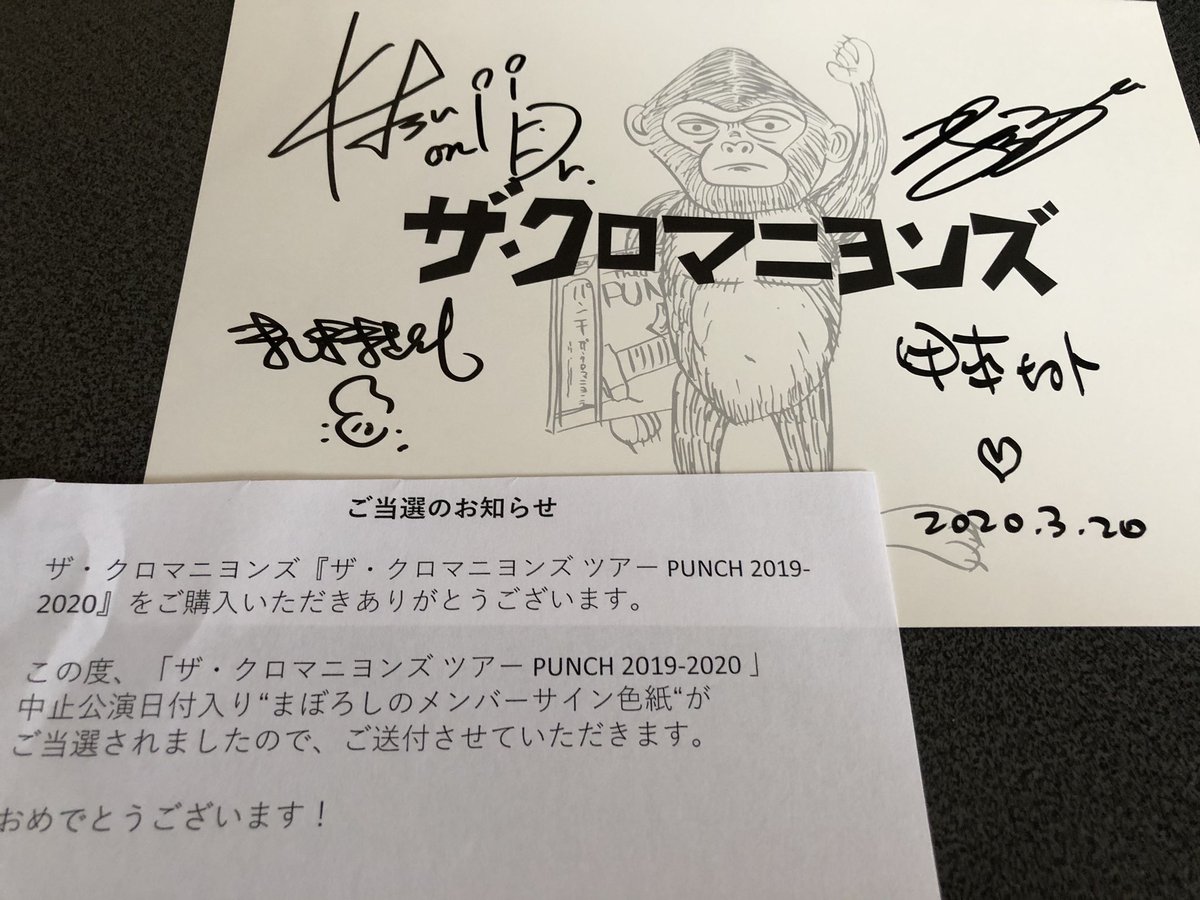 Katsuji
on Dr.
ザ・クロマニヨンズ
PUN
パンチ ザ・クロマニヨンズ
甲本ヒロト
2020.3.20
ご当選のお知らせ
ザ・クロマニヨンズ『ザ・クロマニヨンズ ツアー PUNCH 2019-
2020』をご購入いただきありがとうございます。
この度、「ザ・クロマニヨンズ ツアー PUNCH 2019-2020 」
中止公演日付入り“まぼろしのメンバーサイン色紙“が
ご当選されましたので、ご送付させていただきます。
おめでとうございます！